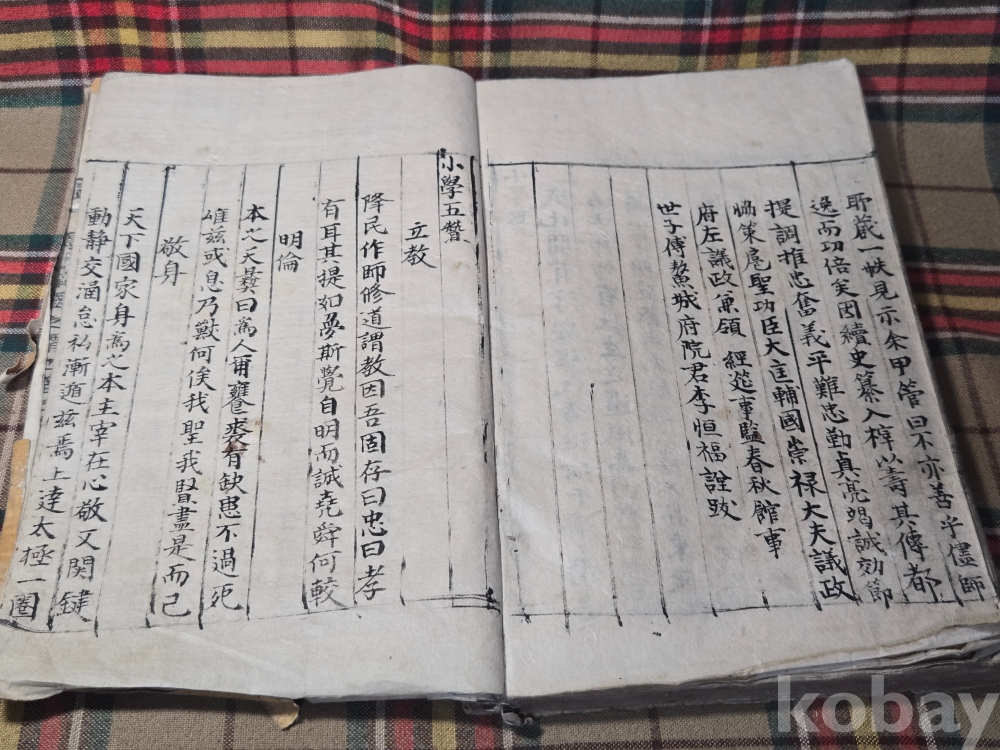 耶歲一帙見示余甲管曰不亦善乎儘師
逸而功倍矣因續史纂入梓以壽其傳都
提調推忠奮義平難忠勤貞亮竭誠効節
協策扈聖功臣大匡輔國崇祿大夫議政
府左議政兼領 經筵事監春秋館事
世子傅鰲城府院君李恒福謹跋
小學五贊
立教
降民作師修道謂教因吾固存曰忠曰孝
百耳其提如夢斯覺自明而誠堯舜何較
明倫
本之天彝曰爲人甭饔裘有缺患不過死
雖兹或息乃獸何俟我聖我賢盡是而已
敬身
天下國家身爲之本主宰在心敬又関鍵
動静交涵怠私漸遁兹焉上達太極一圈
kobay